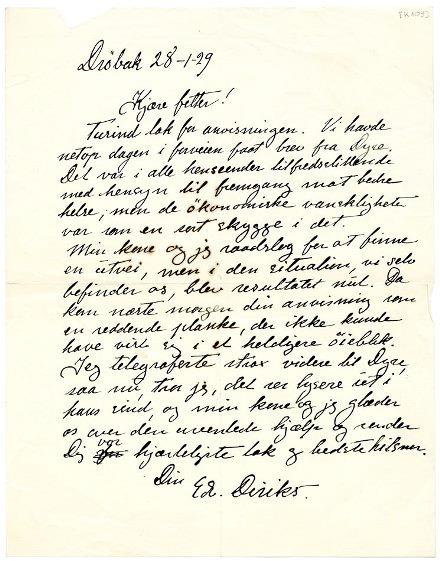 Dröbak 28-1-29
Kjære fetter!
Tusind tak for anvisningen. Vi havde
netop dagen i forveien faat brev fra Dyre.
Det var i alle henseender tilfredsstillende
med hensyn til fremgang mot bedre
helse, men de økonomiske vanskligheter
var som en sort skygge i det.
Min kone og jeg raadslog for at finne
en utvei, men i den situation, vi selv
befinder os, blev resultatet nul. Da
kom næste morgen din anvisning som
en reddende planke, der ikke kunde
have vist sig i et heldigere öieblik.
Jeg telegraferte strax videre til Dyre,
saa nu tror jeg, det ser lysere ut i
hans sind, og min kone og jeg glæder
os over den uventede hjælp og sender
Dig vor hjærteligste tak og bedste hilsner.
Din
Ed. Diriks.